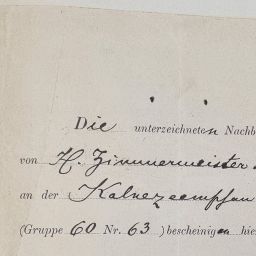 Die unterzeichneten Nachb
von H. Zimmermeister
an der
(Gruppe 60 Nr. 63 ) bescheinigen hie